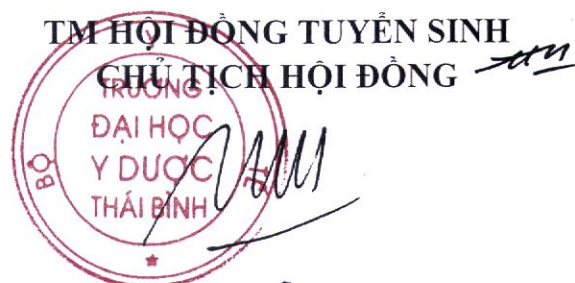 TM HỘI ĐỒNG TUYỂN SINH
CHỦ TỊCH HỘI ĐỒNG
TRƯỜNG
ĐẠI HỌC
Y DƯỢC
THÁI BÌNH
BỘ